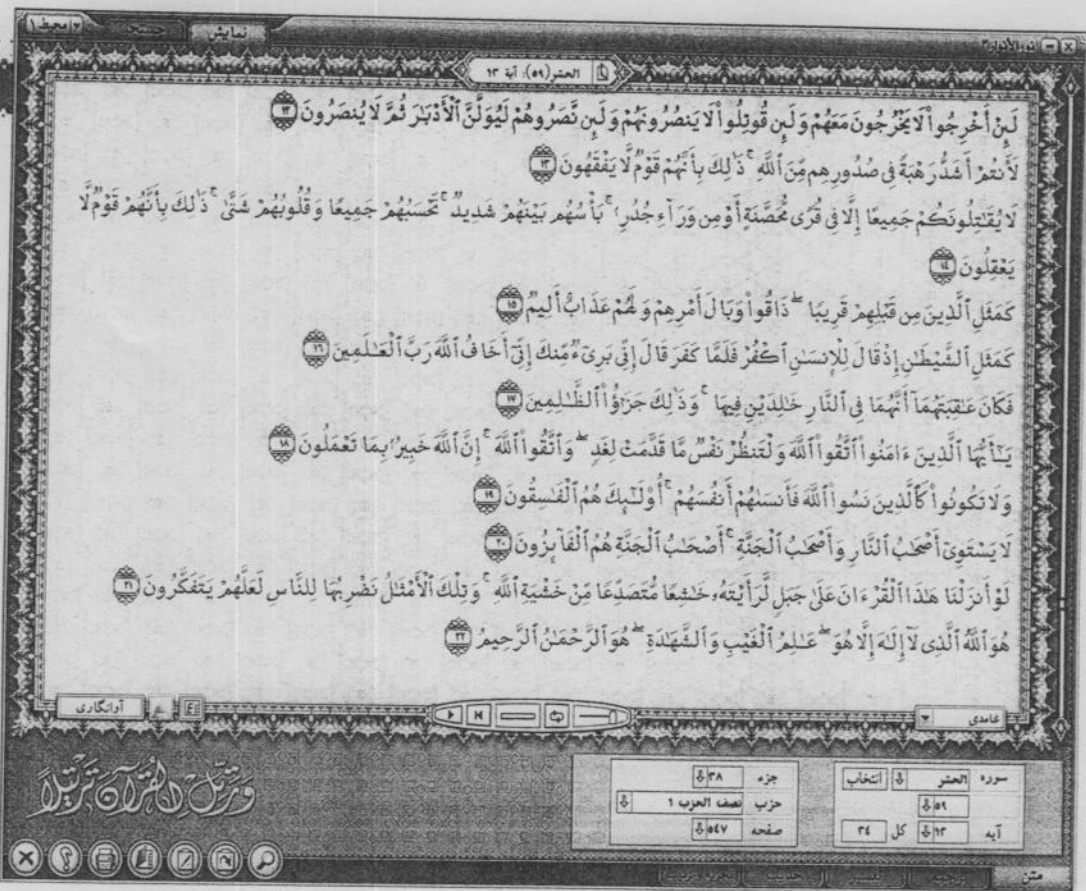 نمایش
محیط ۱
الحشر(۵۹): آیة ۱۳
لَئِنْ أُخْرِجُواْ لَا يَخْرُجُونَ مَعَهُمْ وَلَئِن قُوتِلُواْ لَا يَنصُرُونَهُمْ وَلَئِن نَّصَرُوهُمْ لَيُوَلُّنَّ ٱلْأَدْبَـٰرَ ثُمَّ لَا يُنصَرُونَ ۱۲
لَأَنتُمْ أَشَدُّ رَهْبَةً فِى صُدُورِهِم مِّنَ ٱللَّهِ ۚ ذَٰلِكَ بِأَنَّهُمْ قَوْمٌ لَّا يَفْقَهُونَ ۱۳
لَا يُقَـٰتِلُونَكُمْ جَمِيعًا إِلَّا فِى قُرًى مُّحَصَّنَةٍ أَوْ مِن وَرَآءِ جُدُرٍۭ ۚ بَأْسُهُم بَيْنَهُمْ شَدِيدٌ ۚ تَحْسَبُهُمْ جَمِيعًا وَقُلُوبُهُمْ شَتَّىٰ ۚ ذَٰلِكَ بِأَنَّهُمْ قَوْمٌ لَّا
يَعْقِلُونَ ۱۴
كَمَثَلِ ٱلَّذِينَ مِن قَبْلِهِمْ قَرِيبًا ۖ ذَاقُواْ وَبَالَ أَمْرِهِمْ وَلَهُمْ عَذَابٌ أَلِيمٌ ۱۵
كَمَثَلِ ٱلشَّيْطَـٰنِ إِذْ قَالَ لِلْإِنسَـٰنِ ٱكْفُرْ فَلَمَّا كَفَرَ قَالَ إِنِّى بَرِىٓءٌ مِّنكَ إِنِّىٓ أَخَافُ ٱللَّهَ رَبَّ ٱلْعَـٰلَمِينَ ۱۶
فَكَانَ عَـٰقِبَتَهُمَآ أَنَّهُمَا فِى ٱلنَّارِ خَـٰلِدَيْنِ فِيهَا ۚ وَذَٰلِكَ جَزَٰٓؤُاْ ٱلظَّـٰلِمِينَ ۱۷
يَـٰٓأَيُّهَا ٱلَّذِينَ ءَامَنُواْ ٱتَّقُواْ ٱللَّهَ وَلْتَنظُرْ نَفْسٌ مَّا قَدَّمَتْ لِغَدٍ ۖ وَٱتَّقُواْ ٱللَّهَ ۚ إِنَّ ٱللَّهَ خَبِيرٌۢ بِمَا تَعْمَلُونَ ۱۸
وَلَا تَكُونُواْ كَٱلَّذِينَ نَسُواْ ٱللَّهَ فَأَنسَىٰهُمْ أَنفُسَهُمْ ۚ أُوْلَـٰٓئِكَ هُمُ ٱلْفَـٰسِقُونَ ۱۹
لَا يَسْتَوِىٓ أَصْحَـٰبُ ٱلنَّارِ وَأَصْحَـٰبُ ٱلْجَنَّةِ ۚ أَصْحَـٰبُ ٱلْجَنَّةِ هُمُ ٱلْفَآئِزُونَ ۲۰
لَوْ أَنزَلْنَا هَـٰذَا ٱلْقُرْءَانَ عَلَىٰ جَبَلٍ لَّرَأَيْتَهُۥ خَـٰشِعًا مُّتَصَدِّعًا مِّنْ خَشْيَةِ ٱللَّهِ ۚ وَتِلْكَ ٱلْأَمْثَـٰلُ نَضْرِبُهَا لِلنَّاسِ لَعَلَّهُمْ يَتَفَكَّرُونَ ۲۱
هُوَ ٱللَّهُ ٱلَّذِى لَآ إِلَـٰهَ إِلَّا هُوَ ۖ عَـٰلِمُ ٱلْغَيْبِ وَٱلشَّهَـٰدَةِ ۖ هُوَ ٱلرَّحْمَـٰنُ ٱلرَّحِيمُ ۲۲
غامدی
آوانگاری
سوره الحشر انتخاب
۵۹
آیه ۱۳ کل ۲۴
جزء ۲۸
حزب نصف الحزب 1
صفحه ۵۴۷
وَرَتِّلِ الْقُرْآنَ تَرْتِيلًا
متن